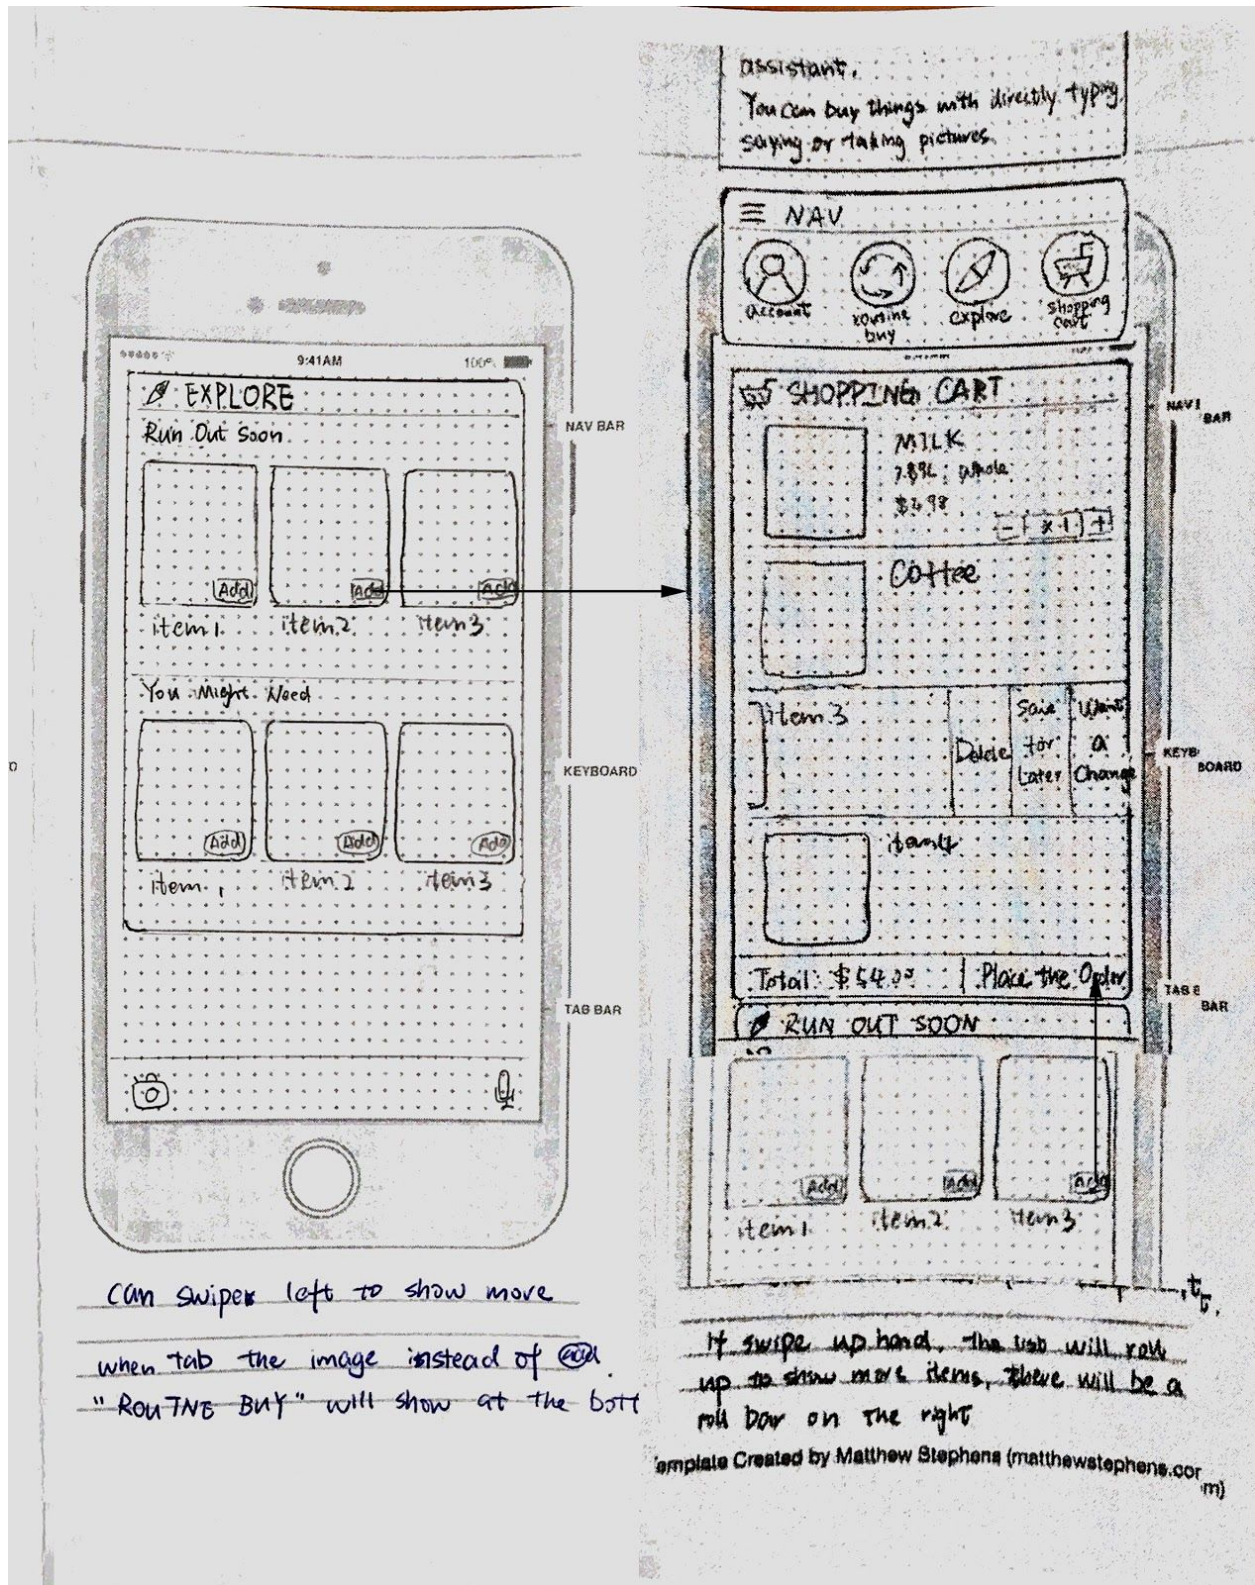 9:41AM
100%
EXPLORE
Run Out Soon
Add
Add
Add
item 1
item 2
item 3
You Might Need
Add
Add
Add
item 1
item 2
item 3
NAV BAR
KEYBOARD
TAB BAR
can swipe left to show move
when tab the image instead of Add
"ROUTNE BUY" will show at the bott
assistant.
You can buy things with directly typing
saying or taking pictures.
NAV
account
routine
buy
explore
shopping
cart
SHOPPING CART
MILK
Whole
$4.98
- x 1 +
Coffee
item 3
Delete
Save
for
Later
Want
a
Change
item4
Total: $54.00
Place the Order
RUN OUT SOON
Add
Add
Add
item 1
item 2
item 3
NAVI
BAR
KEYB
BOARD
TAB B
BAR
If swipe up hand, the list will roll
up to show more items, there will be a
roll bar on the right
emplate Created by Matthew Stephens (matthewstephens.cor
m)